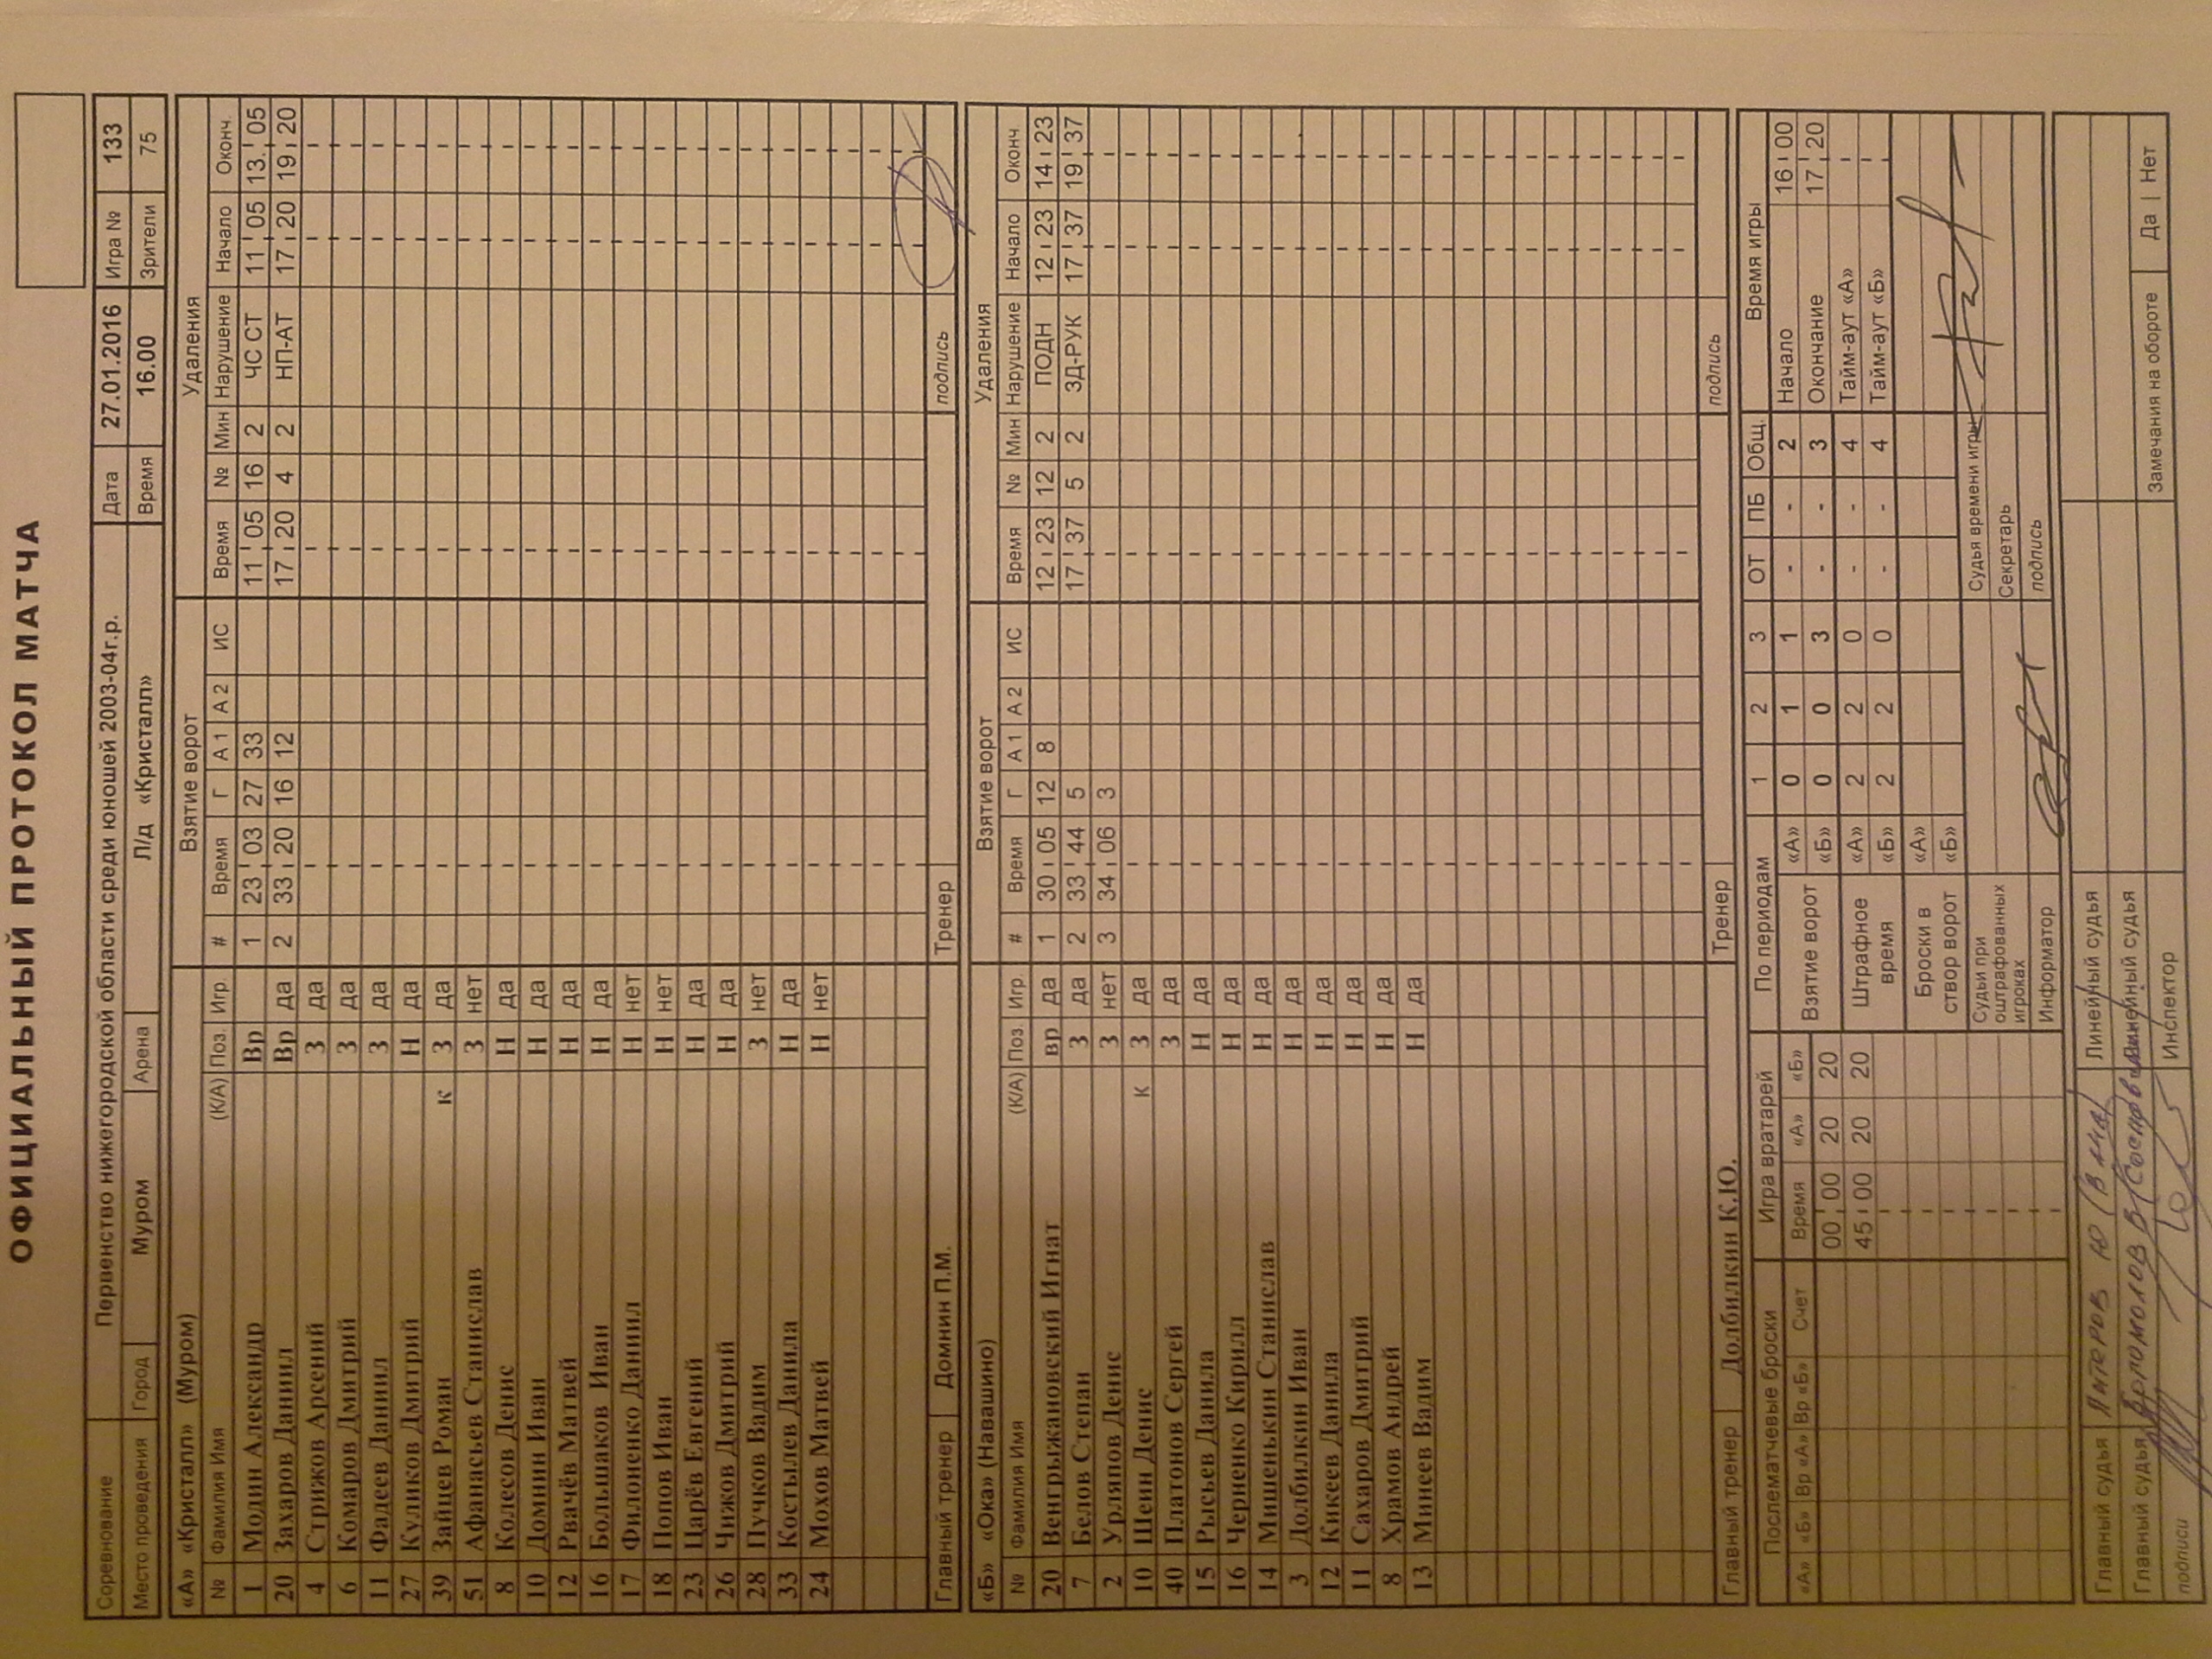 ОФИЦИАЛЬНЫЙ ПРОТОКОЛ МАТЧА
Соревнование Первенство нижегородской области среди юношей 2003-04г.р. Дата 27.01.2016 Игра № 133
Место проведения Город Муром Арена Л/д «Кристалл» Время 16.00 Зрители 75
«А» «Кристалл» (Муром) Взятие ворот Удаления
№ Фамилия Имя (К/А) Поз. Игр. # Время Г А 1 А 2 ИС Время № Мин Нарушение Начало Оконч.
1 Модин Александр Вр 1 23 03 27 33 11 05 16 2 ЧС СТ 11 05 13. 05
20 Захаров Даниил Вр да 2 33 20 16 12 17 20 4 2 НП-АТ 17 20 19 20
4 Стрижов Арсений З да
6 Комаров Дмитрий З да
11 Фадеев Даниил З да
27 Куликов Дмитрий Н да
39 Зайцев Роман К З да
51 Афанасьев Станислав З нет
8 Колесов Денис Н да
10 Домнин Иван Н да
12 Рвачёв Матвей Н да
16 Большаков Иван Н да
17 Филоненко Даниил Н нет
18 Попов Иван Н нет
23 Царёв Евгений Н да
26 Чижов Дмитрий Н да
28 Пучков Вадим З нет
33 Костылев Данила Н да
24 Мохов Матвей Н нет
Главный тренер Домнин П.М. Тренер подпись
«Б» «Ока» (Навашино) Взятие ворот Удаления
№ Фамилия Имя (К/А) Поз. Игр. # Время Г А 1 А 2 ИС Время № Мин Нарушение Начало Оконч.
20 Венгрыжановский Игнат вр да 1 30 05 12 8 12 23 12 2 ПОДН 12 23 14 23
7 Белов Степан З да 2 33 44 5 17 37 5 2 ЗД-РУК 17 37 19 37
2 Урляпов Денис З нет 3 34 06 3
10 Шеин Денис К З да
40 Платонов Сергей З да
15 Рысьев Данила Н да
16 Черненко Кирилл Н да
14 Мишенькин Станислав Н да
3 Долбилкин Иван Н да
12 Кикеев Данила Н да
11 Сахаров Дмитрий Н да
8 Храмов Андрей Н да
13 Минеев Вадим Н да
Главный тренер Долбилкин К.Ю. Тренер подпись
Послематчевые броски Игра вратарей По периодам 1 2 3 ОТ ПБ Общ. Время игры
«А» «Б» Вр «А» Вр «Б» Счет Время «А» «Б» Взятие ворот «А» 0 1 1 - - 2 Начало 16 00
00 00 20 20 «Б» 0 0 3 - - 3 Окончание 17 20
45 00 20 20 Штрафное время «А» 2 2 0 - - 4 Тайм-аут «А»
«Б» 2 2 0 - - 4 Тайм-аут «Б»
Броски в створ ворот «А»
«Б»
Судьи при оштрафованных игроках Судья времени игры
Секретарь
Информатор подпись
Главный судья Линейный судья
Главный судья Линейный судья
подписи Инспектор Замечания на обороте Да | Нет